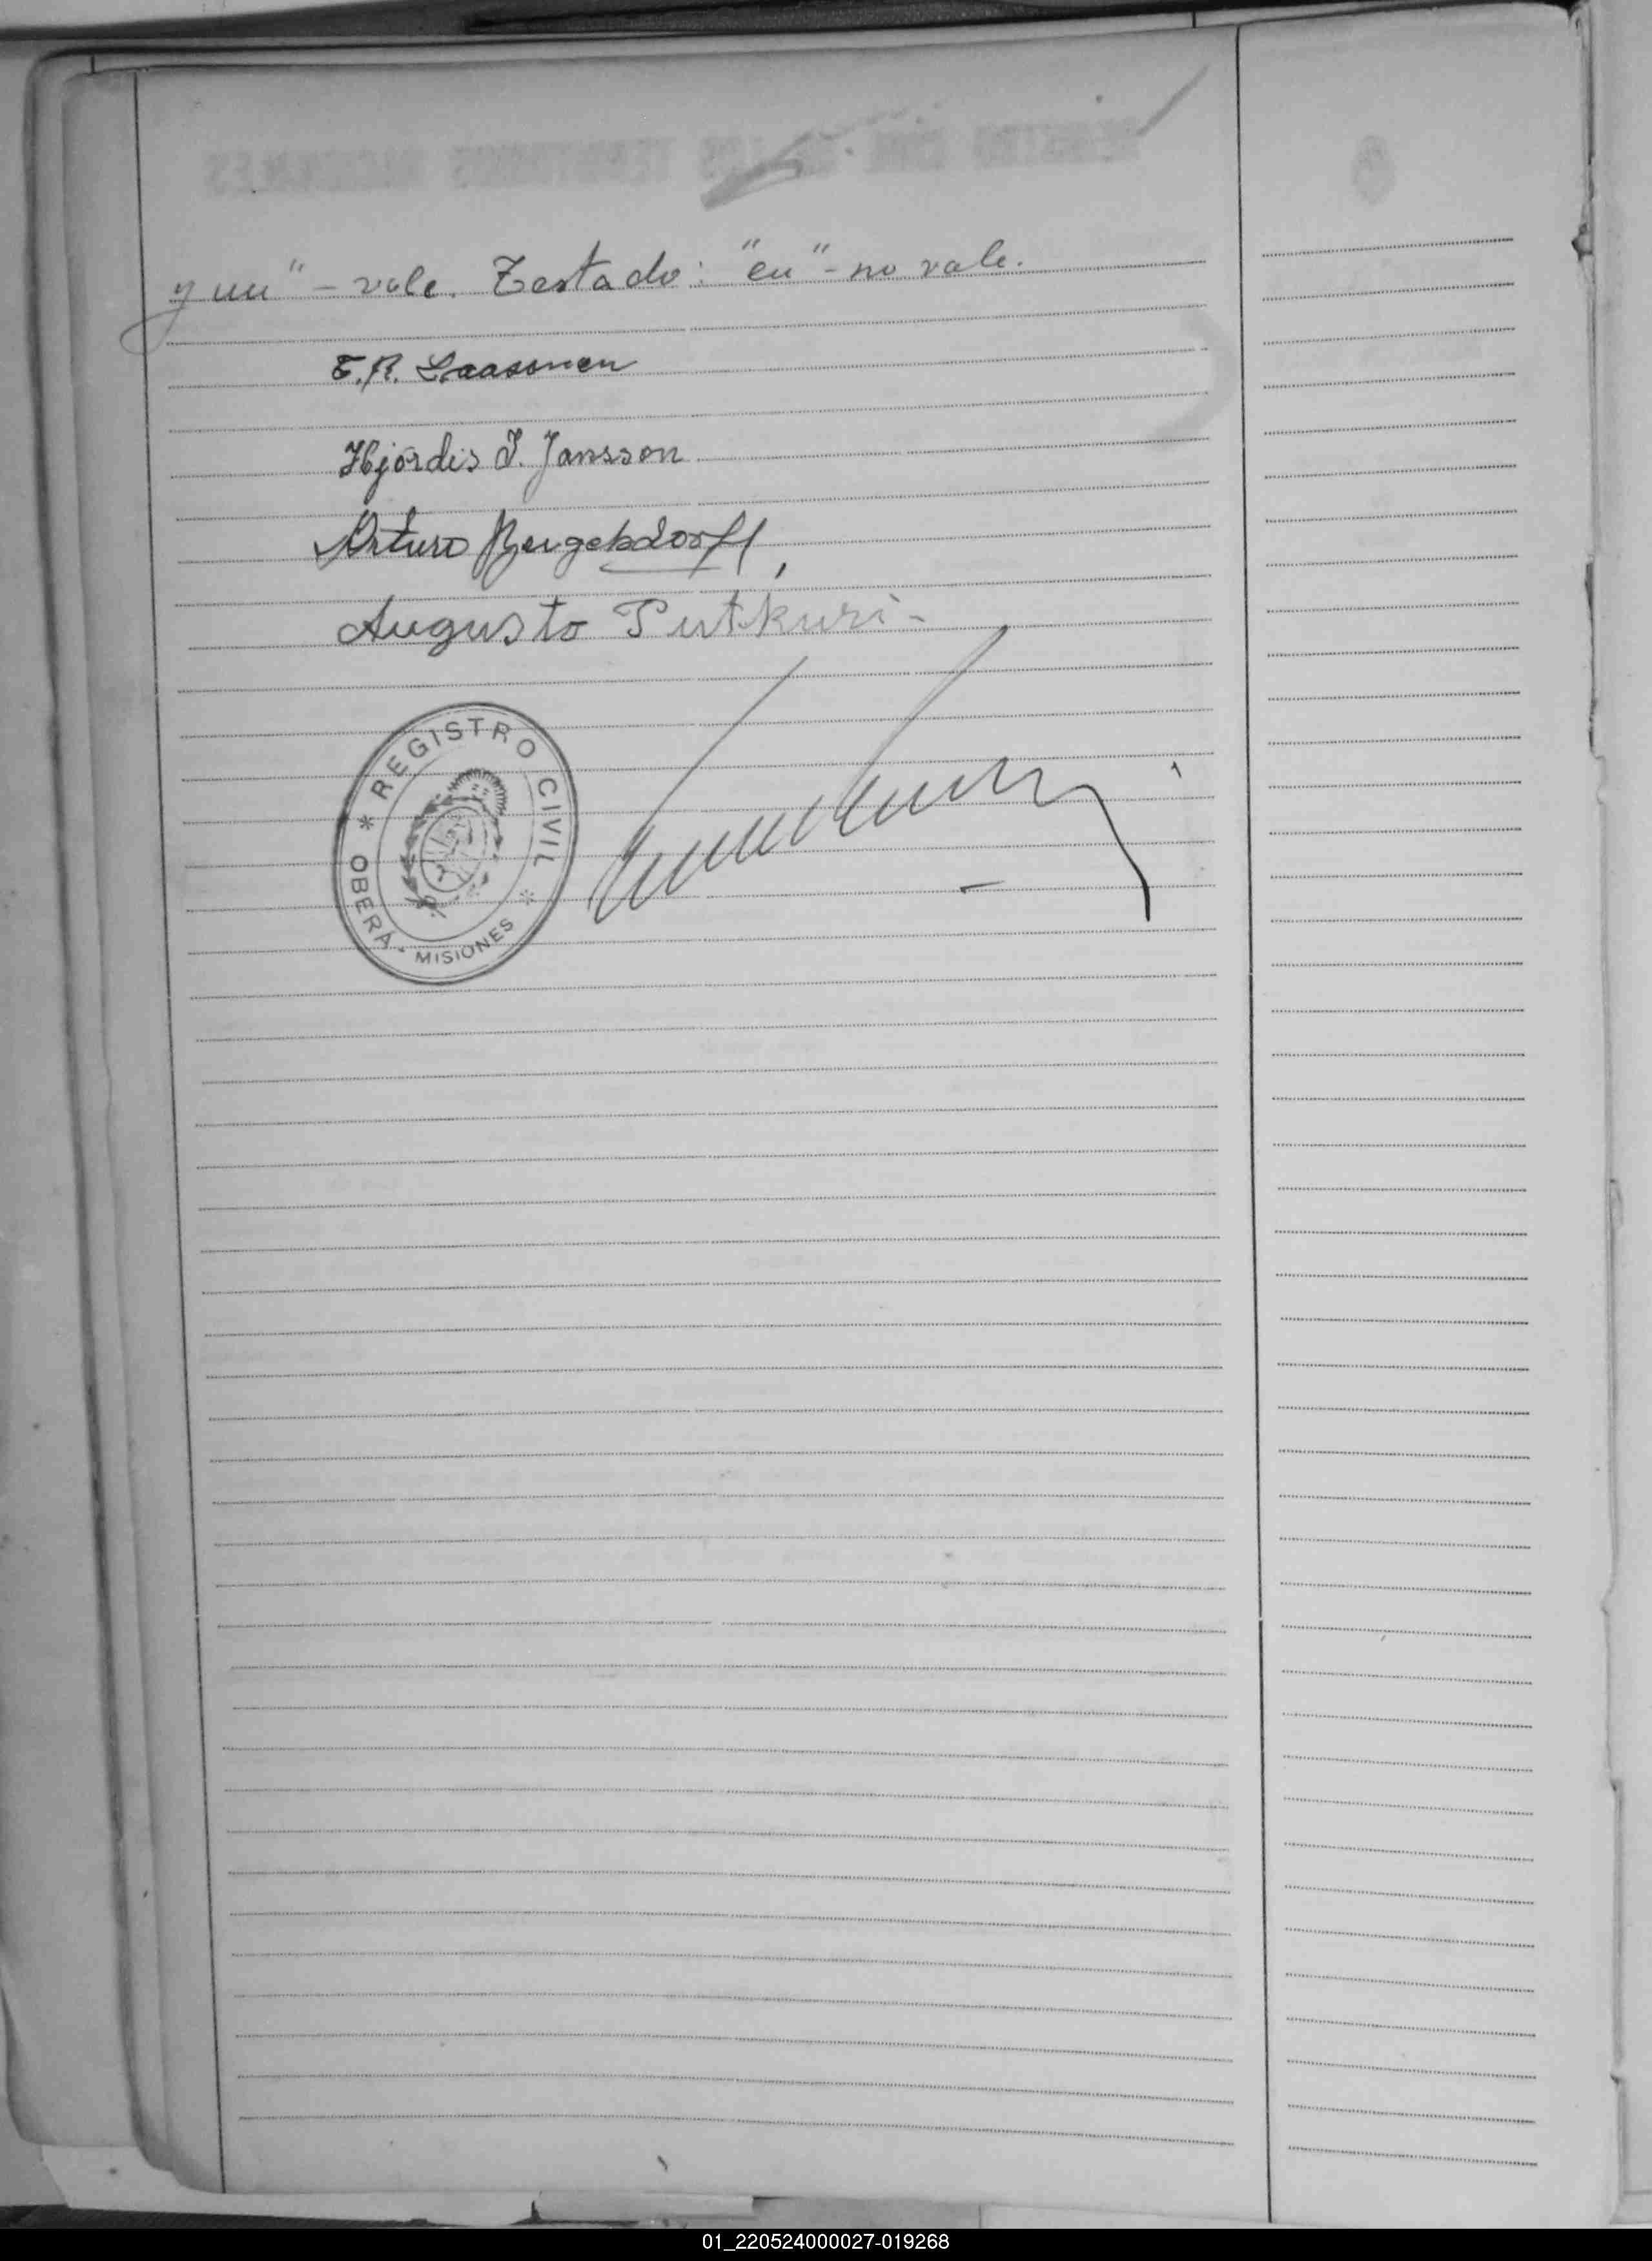 y un" - vale. Testado: "en" - no vale.
E.A. Laasonen
Hjördis I. Jansson
Arturo Bergebdorff,
Augusto Putkuri -
* REGISTRO CIVIL *
OBERÁ - MISIONES
01_220524000027-019268